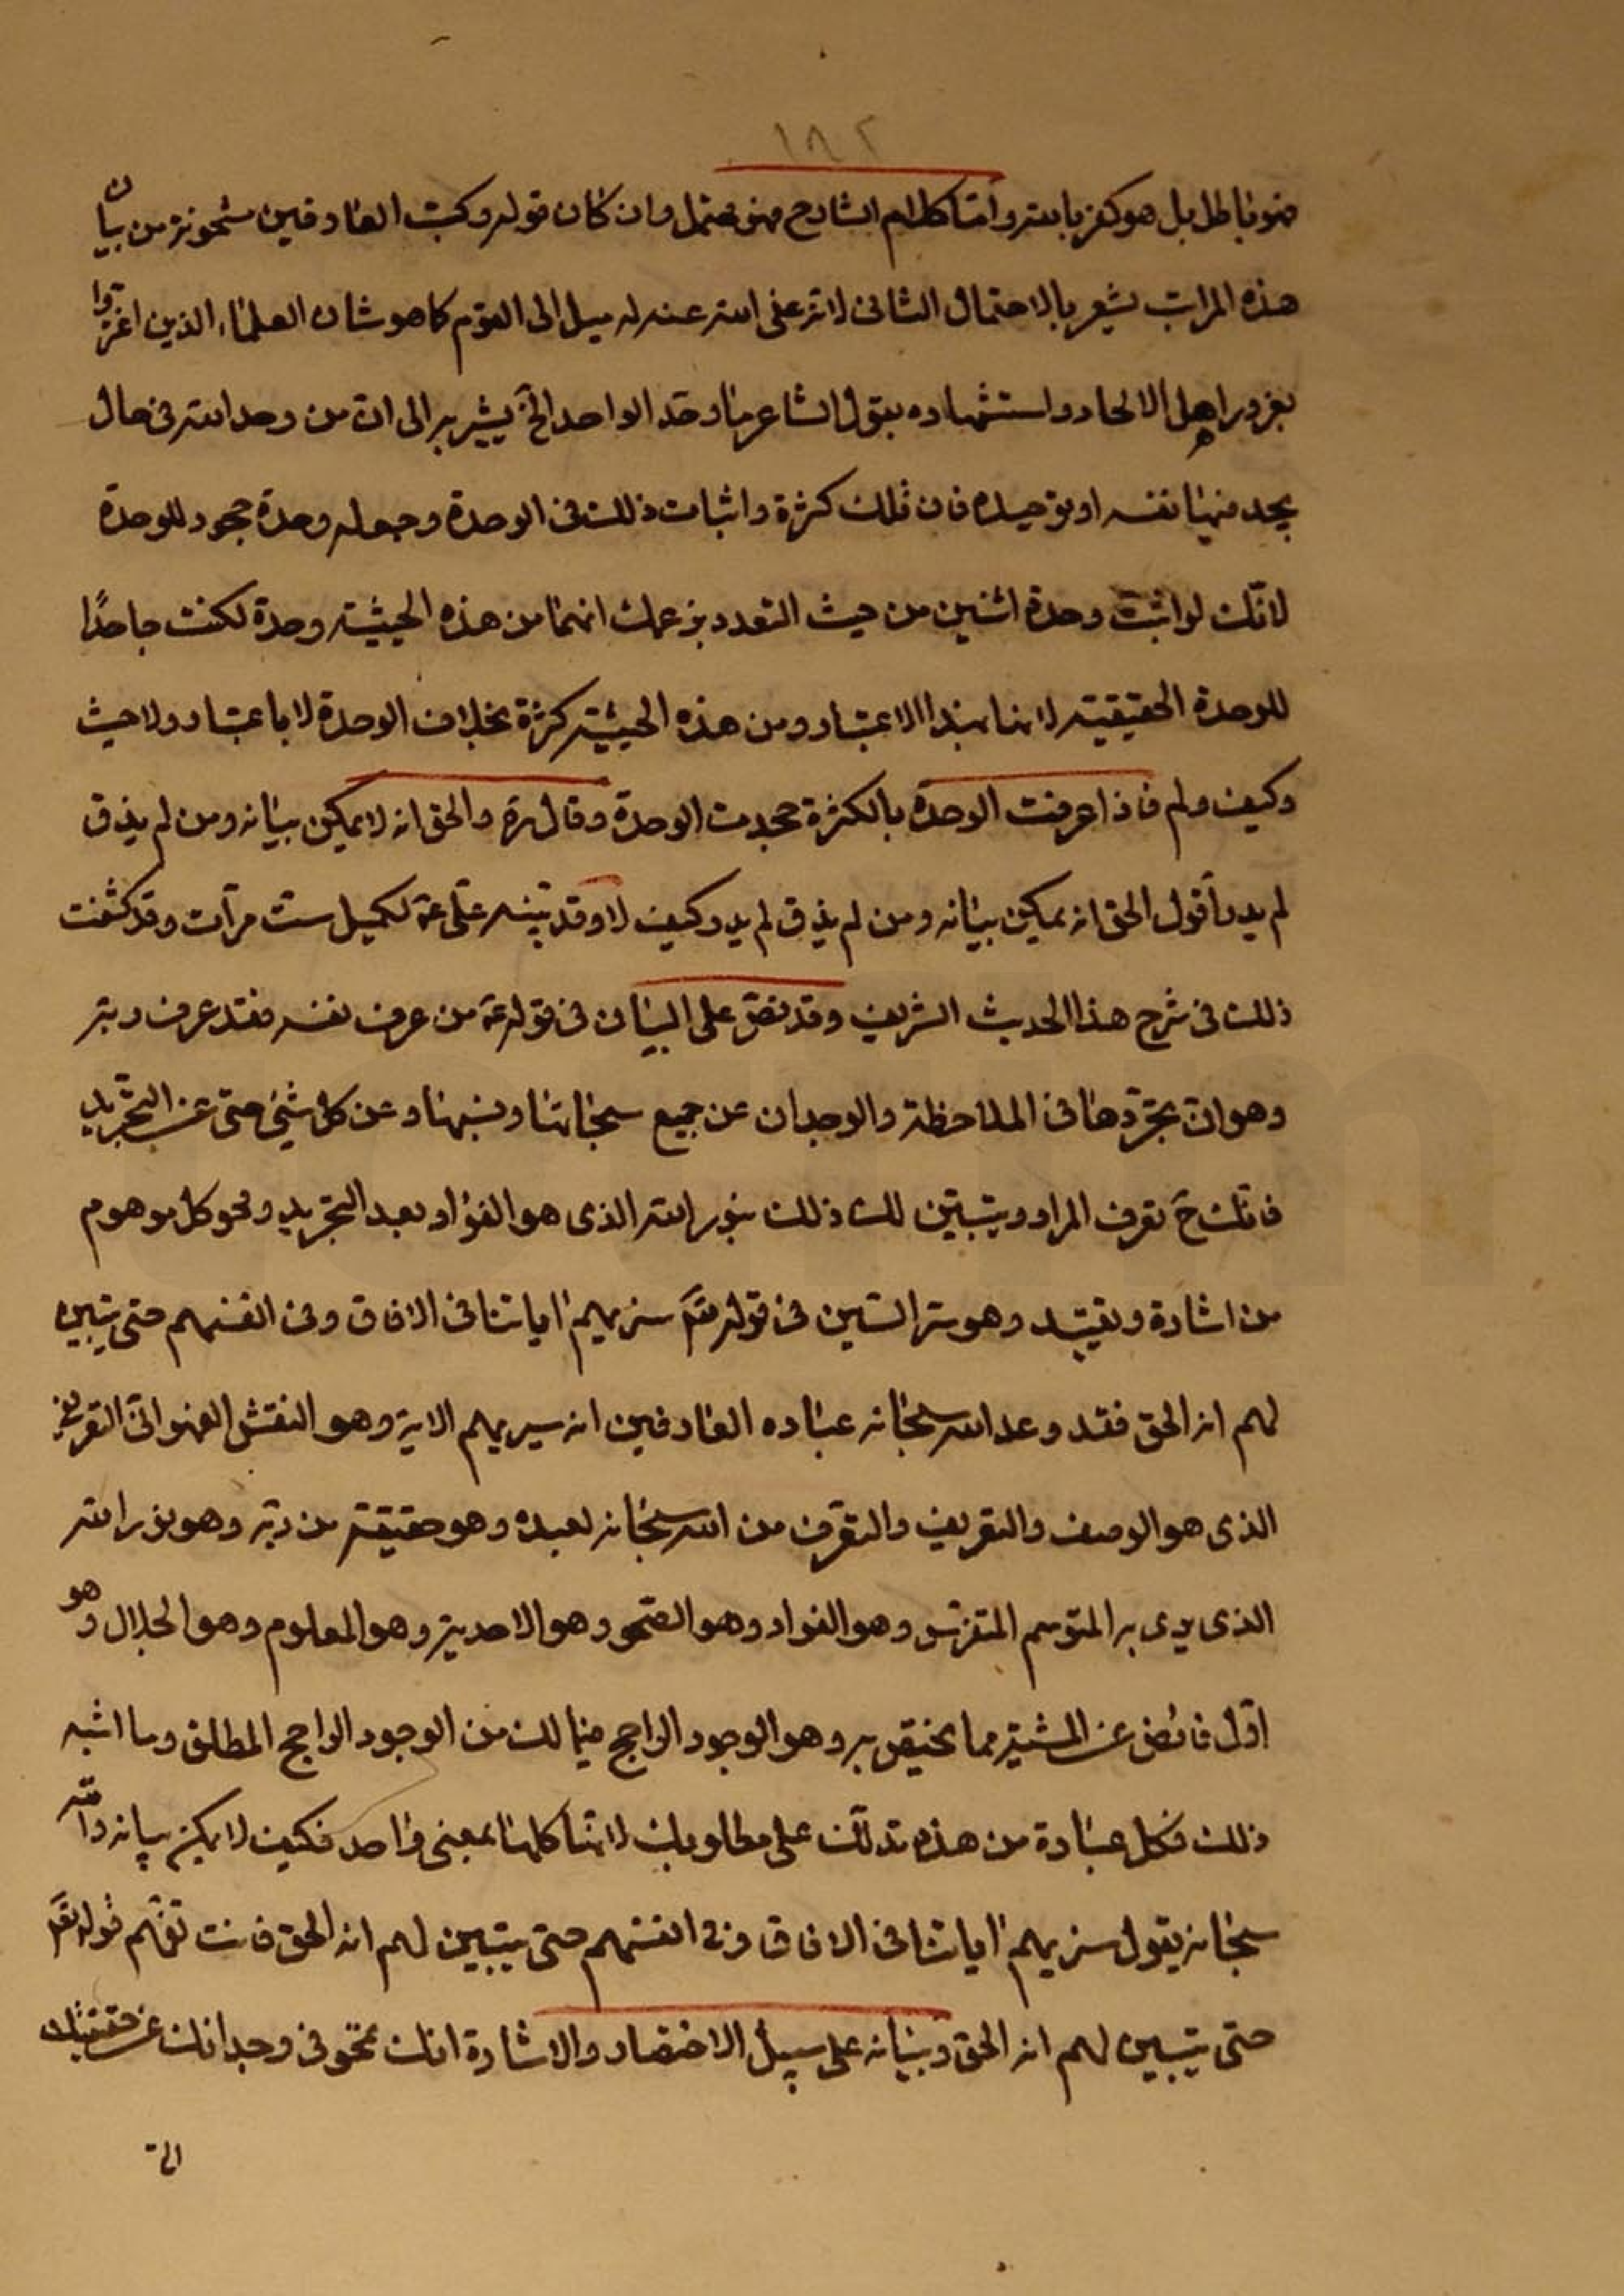 ١٨٢
فهو باطل بل هو كفر بالله وامّا كلام الشارح فهو محتمل وان كان قوله وكتب العارفين مشحونة من بيان
هذه المراتب يشعر بالاحتمال الثانى لانه عفى الله عنه له ميل الى القوم كما هو شان العلماء الذين اغترّوا
بغرور اهل الالحاد واستشهاده بقول الشاعر ما وحّد الواحد الخ يشير به الى ان من وحد الله فى حال
يجد فيها نفسه او توحيده فان ذلك كثرة واثبات ذلك فى الوحدة وجعله وحدة جحود للوحدة
لانّك لو اثبتّ وحدة اثنين من حيث التعدد بزعمك انهما من هذه الحيثية وحدة لكنت جاحدًا
للوحدة الحقيقية لانها بهذا الاعتبار ومن هذه الحيثية كثرة بخلاف الوحدة لا باعتبار ولا حيث
وكيف ولم فاذا عرفت الوحدة بالكثرة جحدت الوحدة وقال ره والحق انه لا يمكن بيانه ومن لم يذق
لم يدر أقول الحق انه يمكن بيانه ومن لم يذق لم يدر وكيف لا وقد بيّنه علىّ ع لكميل ستّ مرّات وقد كشفت
ذلك فى شرح هذا الحديث الشريف وقد نصّ على البيان فى قوله ع من عرف نفسه فقد عرف ربّه
وهو ان تجرّدها فى الملاحظة والوجدان عن جميع سبحاتها ونسبها وعن كل شىء حتى عن التجريد
فانّك ح تعرف المراد ويتبيّن لك ذلك بنور الله الذى هو الفؤاد بعد التجريد ومحو كل موهوم
من اشارة وتقييد وهو سرّ التبيين فى قوله تعَ سنريهم اياتنا فى الافاق وفى انفسهم حتى يتبين
لهم انه الحق فقد وعد الله سبحانه عباده العارفين انه سيريهم الاية وهو النقش الفهوانىّ التعريفى
الذى هو الوصف والتعريف والتعرّف من الله سبحانه لعبده وهو حقيقته من ربّه وهو نور الله
الذى يرى به المتوسم المتفرّس وهو الفواد وهو الصّحو وهو الاحدية وهو المعلوم وهو الجلال وهو
اوّل فائض عن المشيّة مما يختص به وهو الوجود الراجح فيما لك من الوجود الراجح المطلق وما اشبه
ذلك فكل عبارة من هذه تدلّك على مطلوبك لانّها كلها بمعنى واحد فكيف لا يمكن بيانه والله
سبحانه يقول سنريهم اياتنا فى الافاق وفى انفسهم حتى يتبين لهم انه الحق فانت تفهم قوله تعَ
حتى يتبين لهم انه الحق وبيانه على سبيل الاختصار والاشارة انك تمحو فى وجدانك عن حقيقتك